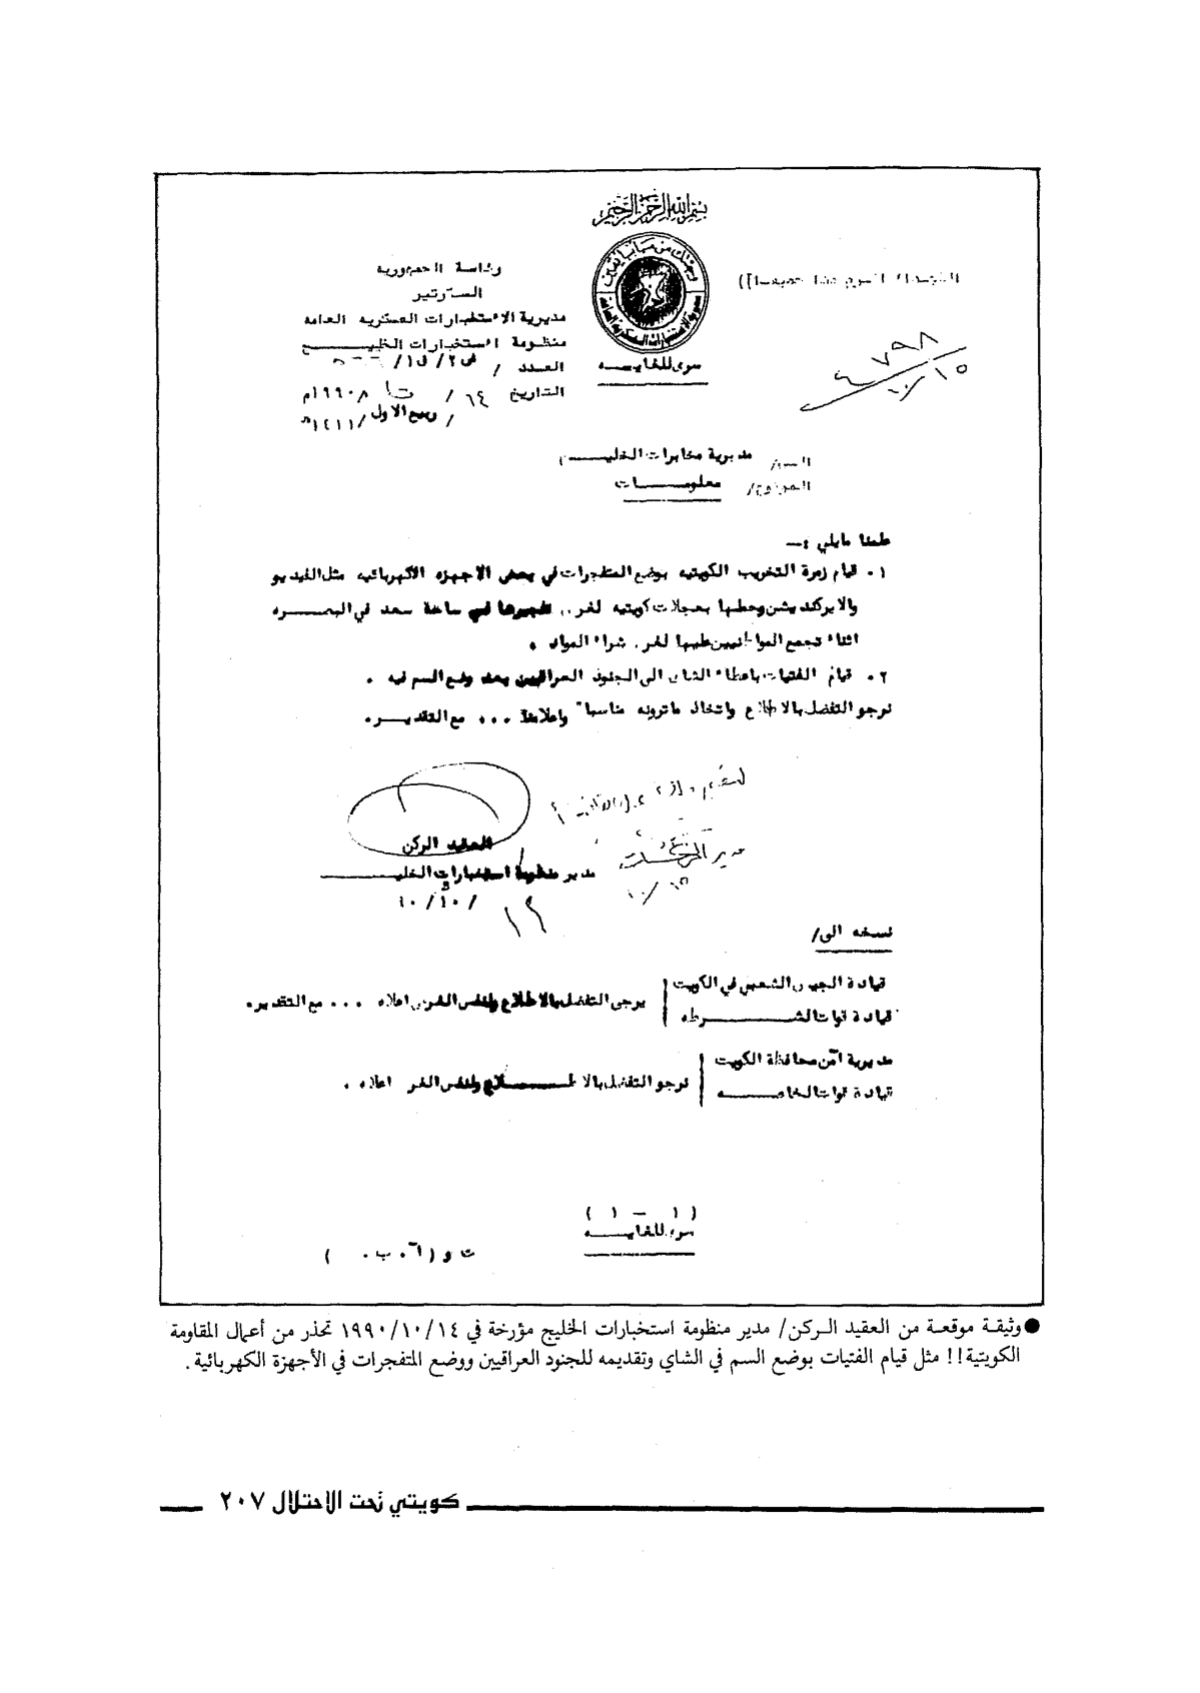 بسم الله الرحمن الرحيم
وجئتك من سبأ بنبأ يقين
مديرية الاستخبارات العسكرية العامة
سري للغايــــه
رئاسة الجمهورية
السكرتير
مديرية الاستخبارات العسكريه العامه
منظومة استخبارات الخليــــج
العدد / ش٢/ق١/
التاريخ ١٤ / ت١ / ١٩٩٠م
/ ربيع الاول /١٤١١هـ
((الشهداء اكرم منا جميعا))
٤٧٩٨
١٠/١٥
الى/ مديرية مخابرات الخليــــج
الموضوع/ معلومــــات
علمنا مايلي :ـ
١. قيام زمرة التخريب الكويتيه بوضع المتفجرات في بعض الاجهزه الكهربائيه مثل الفيديو
والايركنديشن وحطها بعجلات كويتيه لغرض تفجيرها في ساحة سعد في البصــره
اثناء تجمع المواطنيين عليها لغرض شراء المواد .
٢. قيام الفتيات باعطاء الشاي الى الجنود العراقيين بعد وضع السم فيه .
نرجو التفضل بالاطلاع واتخاذ ماترونه مناسبا" واعلامنا ... مع التقديــر.
العقيد الركن
مدير منظومة استخبارات الخليــــج
/١٠/١٠
مدير
١٠/١٥
نسخه الى/
قيادة الجيش الشعبي في الكويت
قيادة قوات الشــــرطه
يرجى التفضل بالاطلاع ولنفس الغرض اعلاه ... مع التقدير.
مديرية أمن محافظة الكويت
قيادة قوات الخاصــــه
نرجو التفضل بالاطــــلاع ولنفس الغرض اعلاه .
( ١ – ١ )
سري للغايــــه
● وثيقة موقعة من العقيد الركن/ مدير منظومة استخبارات الخليج مؤرخة في ١٩٩٠/١٠/١٤ تحذر من أعمال المقاومة
الكويتية!! مثل قيام الفتيات بوضع السم في الشاي وتقديمه للجنود العراقيين ووضع المتفجرات في الأجهزة الكهربائية.
كويتي تحت الاحتلال ٢٠٧